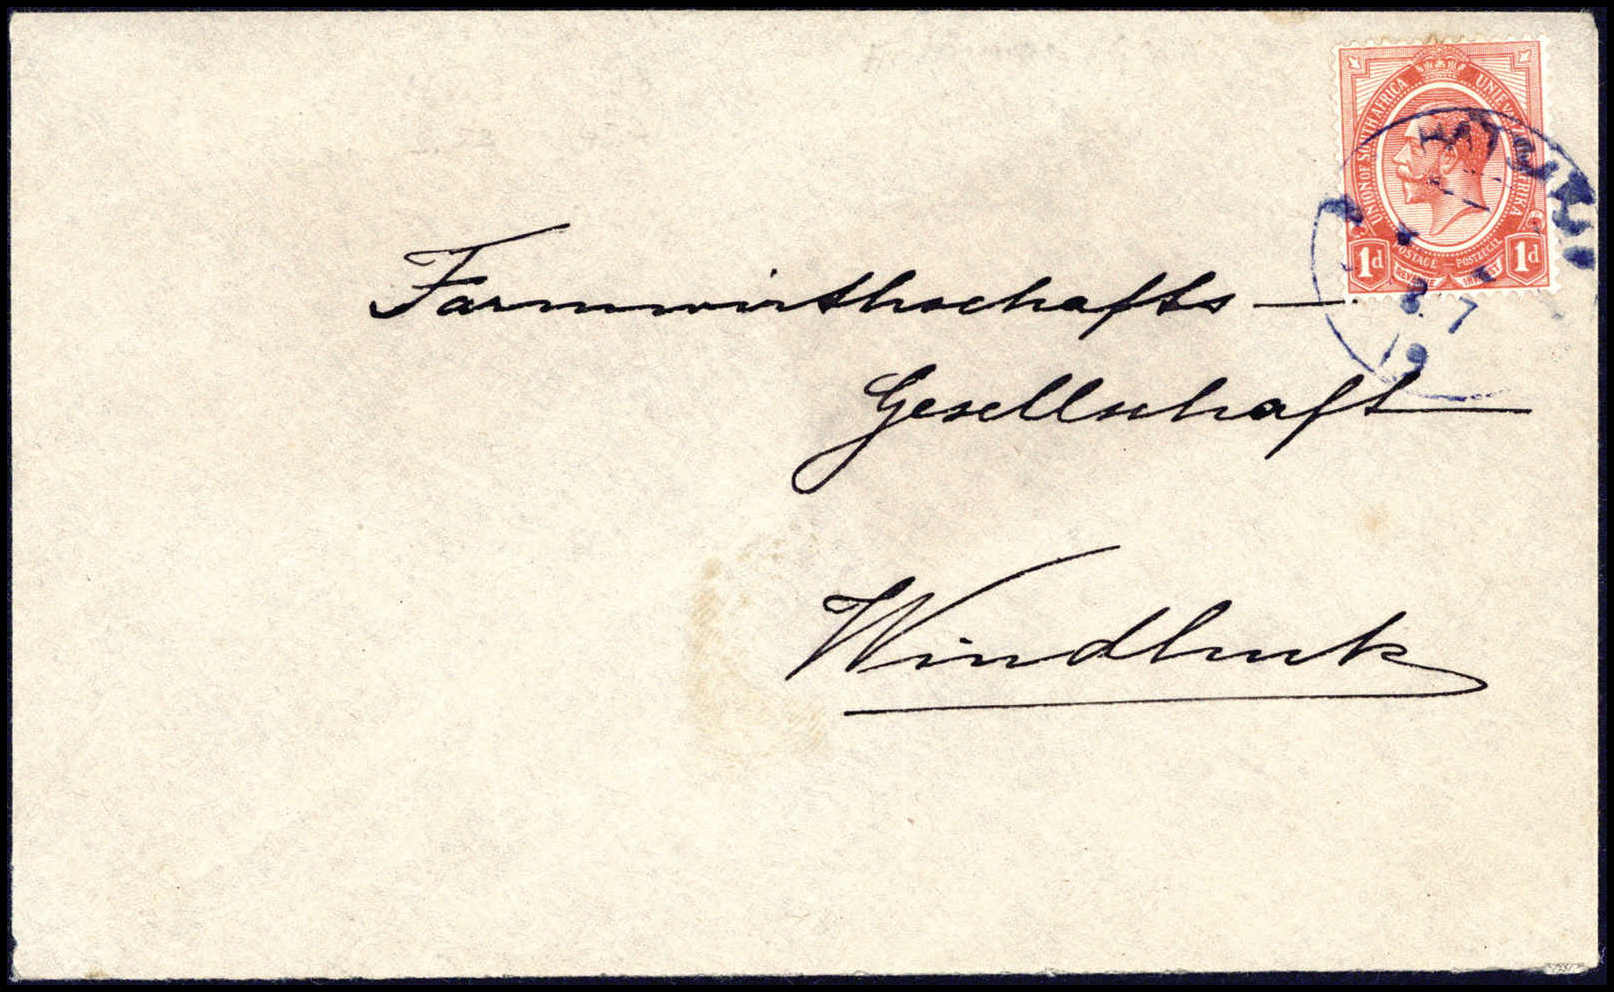 UNION OF SOUTH AFRICA UNIE VAN ZUID AFRIKA
POSTAGE POSTZEGEL
1d REVENUE INKOMST 1d
Farmwirthschafts-
Gesellschaft
Windhuk